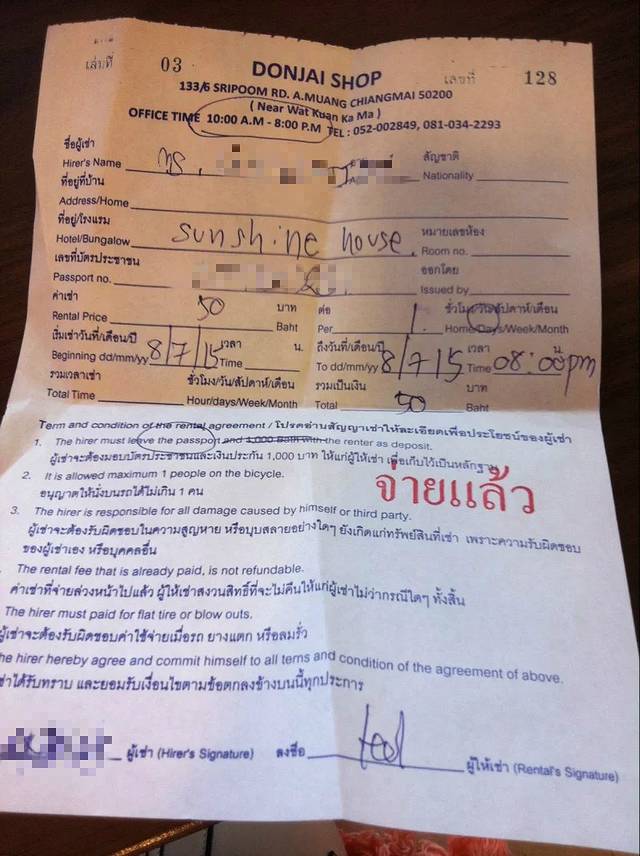 เล่มที่ 03 DONJAI SHOP เลขที่ 128
133/6 SRIPOOM RD. A.MUANG CHIANGMAI 50200
( Near Wat Kuan Ka Ma )
OFFICE TIME 10:00 A.M - 8:00 P.M TEL : 052-002849, 081-034-2293
ชื่อผู้เช่า สัญชาติ
Hirer's Name Nationality
ที่อยู่ที่บ้าน
Address/Home
ที่อยู่/โรงแรม หมายเลขห้อง
Hotel/Bungalow sunshine house. Room no.
เลขที่บัตรประชาชน ออกโดย
Passport no. Issued by
ค่าเช่า บาท ต่อ ชั่วโมง/วัน/สัปดาห์/เดือน
Rental Price 50 Baht Per 1. Home/Days/Week/Month
เริ่มเช่าวันที่/เดือน/ปี เวลา น. ถึงวันที่/เดือน/ปี เวลา น.
Beginning dd/mm/yy 8/7/15 Time To dd/mm/yy 8/7/15 Time 08:00pm
รวมเวลาเช่า ชั่วโมง/วัน/สัปดาห์/เดือน รวมเป็นเงิน บาท
Total Time Hour/days/Week/Month Total 50 Baht
Term and condition of the rental agreement / โปรดอ่านสัญญาเช่าให้ละเอียดเพื่อประโยชน์ของผู้เช่า
1. The hirer must leave the passport and 1,000 Bath with the renter as deposit.
ผู้เช่าจะต้องมอบบัตรประชาชนและเงินประกัน 1,000 บาท ให้แก่ผู้ให้เช่า เพื่อเก็บไว้เป็นหลักฐาน
2. It is allowed maximum 1 people on the bicycle.
อนุญาตให้นั่งบนรถได้ไม่เกิน 1 คน
จ่ายแล้ว
3. The hirer is responsible for all damage caused by himself or third party.
ผู้เช่าจะต้องรับผิดชอบในความสูญหาย หรือบุบสลายอย่างใดๆ ยังเกิดแก่ทรัพย์สินที่เช่า เพราะความรับผิดชอบ
ของผู้เช่าเอง หรือบุคคลอื่น
. The rental fee that is already paid, is not refundable.
ค่าเช่าที่จ่ายล่วงหน้าไปแล้ว ผู้ให้เช่าสงวนสิทธิ์ที่จะไม่คืนให้แก่ผู้เช่าไม่ว่ากรณีใดๆ ทั้งสิ้น
The hirer must paid for flat tire or blow outs.
ผู้เช่าจะต้องรับผิดชอบค่าใช้จ่ายเมื่อรถ ยางแตก หรือลมรั่ว
he hirer hereby agree and commit himself to all terns and condition of the agreement of above.
ช่าได้รับทราบ และยอมรับเงื่อนไขตามข้อตกลงข้างบนนี้ทุกประการ
ผู้เช่า (Hirer's Signature) ลงชื่อ ผู้ให้เช่า (Rental's Signature)